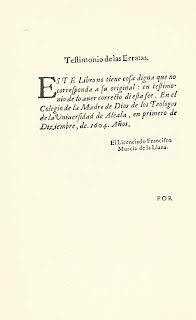 Testimonio de las Erratas.
ESTE Libro no tiene cosa digna que no
corresponda a su original: en testimo-
nio de lo auer correcto di esta fee. En el
Colegio de la Madre de Dios de los Teologos
de la Vniuersidad de Alcala, en primero de
Diziembre, de. 1604. Años.
El Licenciado Francisco
Murcia de la Llana.
POR